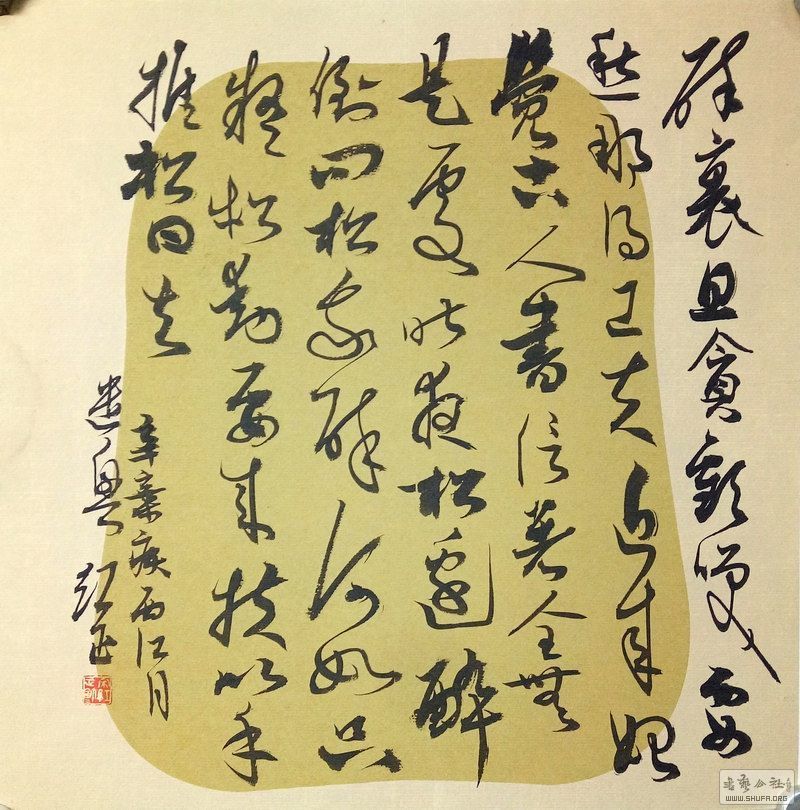 醉裏且貪歡咲要
愁那得工夫近来始
覺古人書信著全無
是處昨夜松邊醉
倒问松我醉何如只
疑松動要来扶以手
推松曰去
辛棄疾西江月
遣興
书艺公社
WWW.SHUFA.ORG